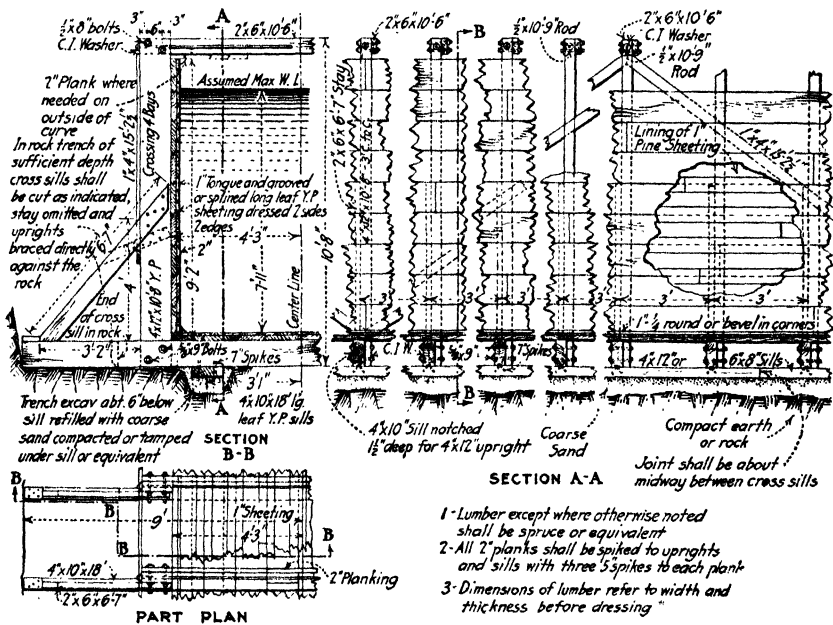 3"
3"
A
½"x8" bolts
6"
C.I. Washer
2"x6"x10'6"
2" Plank where
needed on
outside of
curve
In rock trench of
sufficient depth
cross sills shall
be cut as indicated,
stay omitted and
uprights
braced directly
against the
rock
Crossing 4 Days
Assumed Max W. L.
1" Tongue and grooved
or splined long leaf Y.P
sheeting dressed 2 sides
2 edges
2"
4'-3"
9'-2"
7'-11"
Center Line
10'-8"
End
of cross
sill in rock
4
6"x12"x10'8" Y.P
3'-2"
7" Spikes
3'1"
4"x10"x18' lg
leaf Y.P. sills
A
Trench excav abt. 6" below
sill refilled with coarse
sand compacted or tamped
under sill or equivalent
SECTION
B-B
2"x6"x10'6"
B
½"x10'-9" Rod
2"x6"x10'6"
C.I. Washer
½"x10'-9"
Rod
2"x6"x6'-7" Stay
Lining of 1"
Pine Sheeting
3'
3'
3'
3'
3'
3'
1" ¼ round or bevel in corners
C.I.W.
7" Spikes
4"x12" or
6"x8" Sills
B
4"x10" Sill notched
1½" deep for 4"x12" upright
Coarse
Sand
Compact earth
or rock
Joint shall be about
midway between cross sills
SECTION A-A
B
B
9'
1" Sheeting
4'3"
B
B
B
4"x10"x18'
2" Planking
2"x6"x6'-7"
PART PLAN
1-Lumber except where otherwise noted
shall be spruce or equivalent
2-All 2" planks shall be spiked to uprights
and sills with three 5" spikes to each plank
3-Dimensions of lumber refer to width and
thickness before dressing